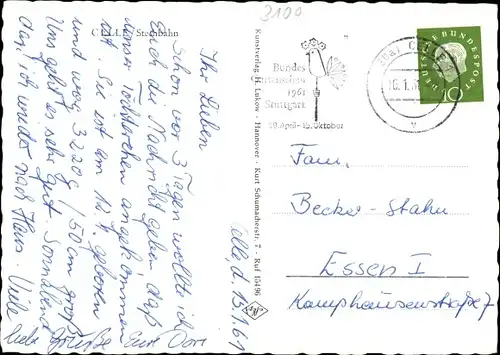 3100
CELLE, Steinbahn
Ihr Lieben
Schon vor 3 Tagen wollte ich
Euch die Nachricht geben daß
unser Töchterchen angekommen
ist. Sie ist am 12.1. geboren
und wog 3220 g / 50 cm groß
Uns geht es sehr gut. Sonnabend
darf ich wieder nach Haus. Viele
liebe Grüße Eure Dori
Celle d. 15.1.61
Kunstverlag H. Lukow · Hannover · Kurt Schumacherstr. 7 · Ruf 15496
Bundes
gartenschau
1961
Stuttgart
29. April - 15. Oktober
CELLE
16.1.61
DEUTSCHE BUNDESPOST
10
Fam.
Becker-Stahn
Essen I
Kamphausenstraße 7